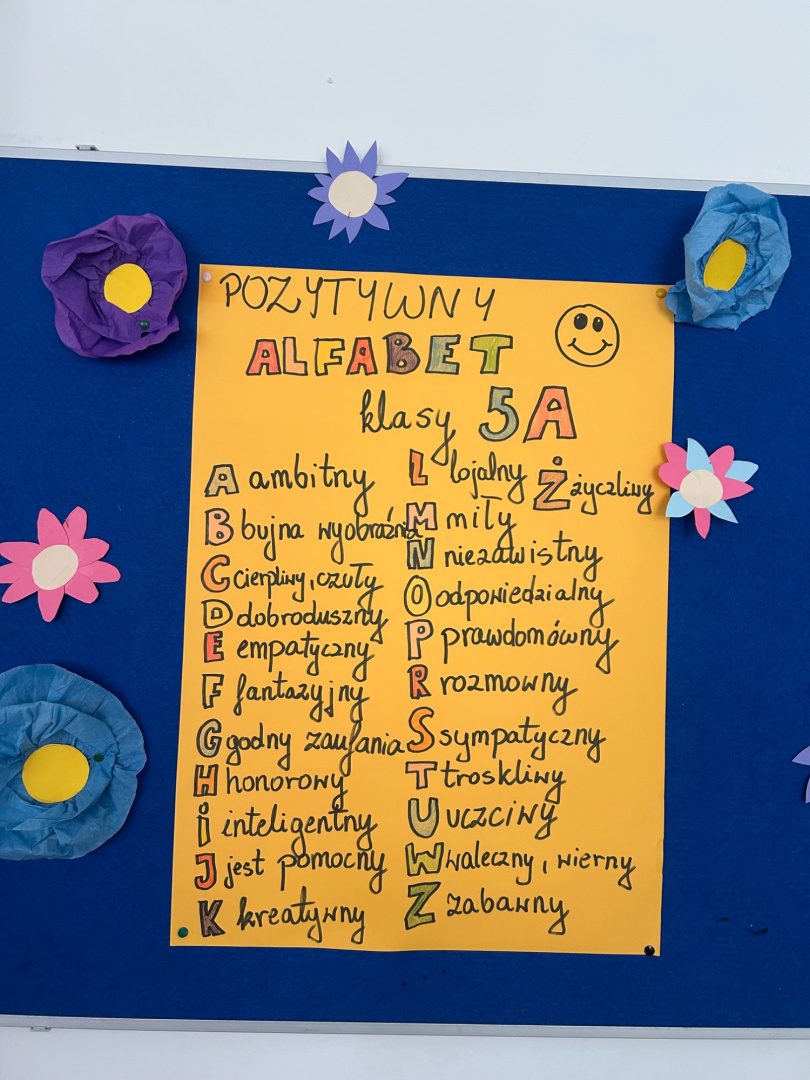 POZYTYWNY
ALFABET
klasy 5A
A ambitny
B bujna wyobraźnia
C cierpliwy, czuły
D dobroduszny
E empatyczny
F fantazyjny
G godny zaufania
H honorowy
i inteligentny
J jest pomocny
K kreatywny
L lojalny
M miły
N niezawistny
O odpowiedzialny
P prawdomówny
R rozmowny
S sympatyczny
T troskliwy
U uczciwy
W waleczny, wierny
Z zabawny
Ż życzliwy